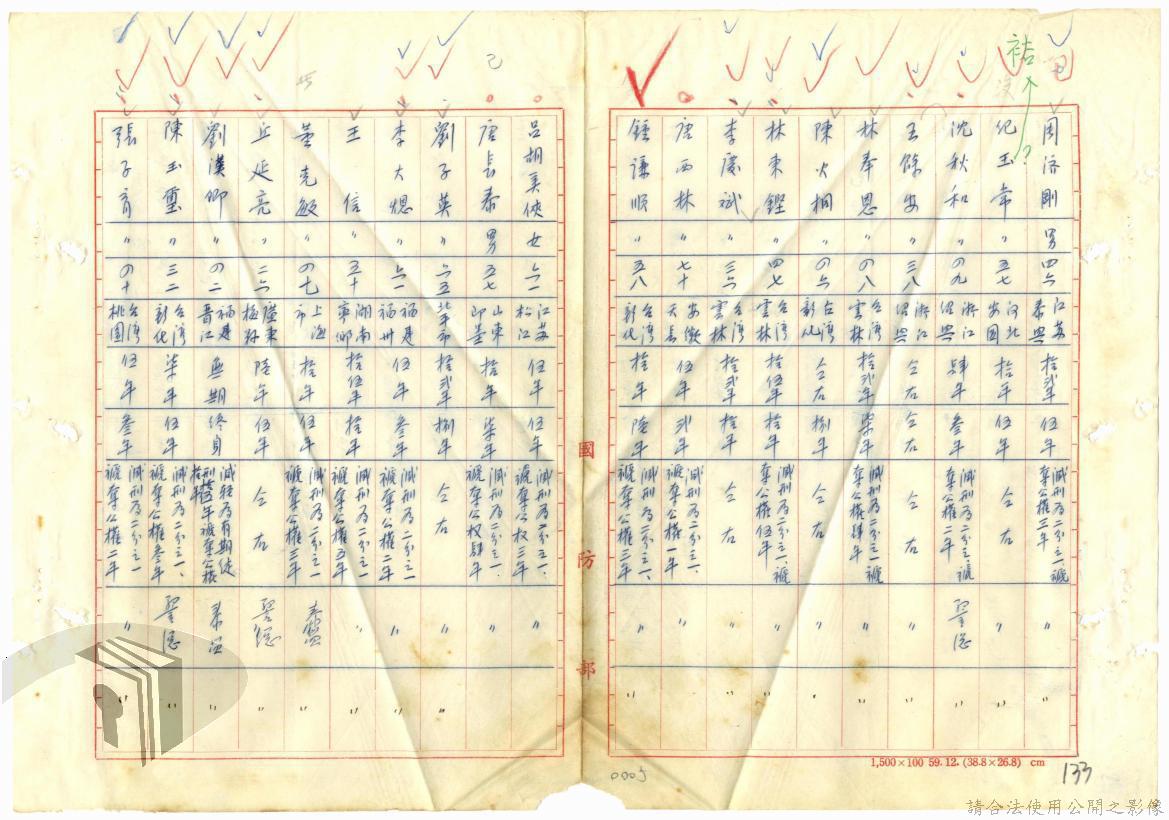 周濟剛 男 四六 江苏泰興 拾貳年 伍年 減刑為二分之一、褫奪公權三年 〃 〃
紀玉年 〃 五七 河北安國 拾年 伍年 仝右 〃 〃
沈秋和 〃 四九 浙江绍興 肆年 叁年 減刑為二分之一、褫奪公權二年
王餘安 〃 三八 浙江绍興 仝右 仝右 仝右 〃 〃
林奉恩 〃 四八 台湾雲林 拾貳年 柒年 減刑為二分之一、褫奪公權肆年 〃 〃
陳火桐 〃 四六 台湾彰化 仝右 捌年 仝右 〃 〃
林束鏗 〃 四七 台湾雲林 拾伍年 拾年 減刑為二分之一、褫奪公權伍年 〃 〃
李慶斌 〃 三六 台湾雲林 拾貳年 拾年 仝右 〃 〃
唐西林 〃 七十 安徽天長 伍年 貳年 減刑為二分之一、褫奪公權一年 〃 〃
鍾謙順 〃 五八 台湾彰化 拾年 陸年 減刑為二分之一、褫奪公權三年 〃 〃
國防部
呂胡美俠 女 六一 江苏松江 伍年 伍年 減刑為二分之一、褫奪公权三年 〃 〃
唐長泰 男 五七 山東即墨 拾年 柒年 減刑為二分之一、褫奪公权肆年 〃 〃
劉子英 〃 六五 北平市 拾貳年 捌年 仝右 〃 〃
李大熜 〃 六一 福建福州 伍年 叁年 減刑為二分之一褫奪公權二年 〃 〃
王信 〃 五十 湖南寧鄉 拾伍年 拾年 減刑為二分之一褫奪公權五年 〃 〃
董克敏 〃 四七 上海市 拾年 伍年 減刑為二分之一褫奪公權三年 〃
丘延亮 〃 二六 廣東 陸年 伍年 仝右 〃
劉漢卿 〃 四二 福建晋江 無期 終身 減輕為有期徒刑拾伍年褫奪公權拾年 〃
陳玉璽 〃 三二 台湾彰化 柒年 伍年 減刑為二分之一、褫奪公權叁年 〃
張子育 〃 四十 台湾桃園 伍年 叁年 減刑為二分之一褫奪公權二年 〃 〃
祜
?
1,500×100 59.12.(38.8×26.8) cm
133
0005
請合法使用公開之影像